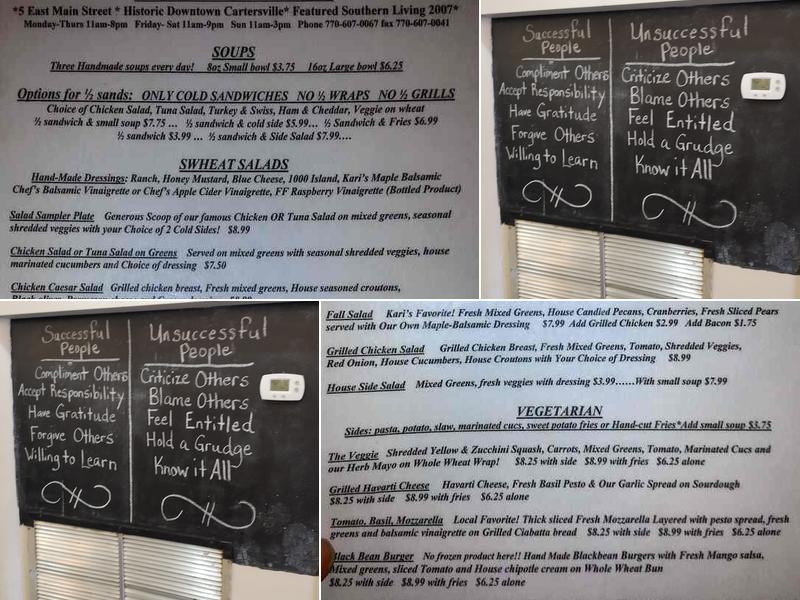 *5 East Main Street * Historic Downtown Cartersville* Featured Southern Living 2007*
Monday-Thurs 11am-8pm Friday- Sat 11am-9pm Sun 11am-3pm Phone 770-607-0067 fax 770-607-0041
SOUPS
Three Handmade soups every day! 8oz Small bowl $3.75 16oz Large bowl $6.25
Options for ½ sands: ONLY COLD SANDWICHES NO ½ WRAPS NO ½ GRILLS
Choice of Chicken Salad, Tuna Salad, Turkey & Swiss, Ham & Cheddar, Veggie on wheat
½ sandwich & small soup $7.75 ... ½ sandwich & cold side $5.99... ½ Sandwich & Fries $6.99
½ sandwich $3.99 ... ½ sandwich & Side Salad $7.99....
SWHEAT SALADS
Hand-Made Dressings: Ranch, Honey Mustard, Blue Cheese, 1000 Island, Kari's Maple Balsamic
Chef's Balsamic Vinaigrette or Chef's Apple Cider Vinaigrette, FF Raspberry Vinaigrette (Bottled Product)
Salad Sampler Plate Generous Scoop of our famous Chicken OR Tuna Salad on mixed greens, seasonal
shredded veggies with your Choice of 2 Cold Sides! $8.99
Chicken Salad or Tuna Salad on Greens Served on mixed greens with seasonal shredded veggies, house
marinated cucumbers and Choice of dressing $7.50
Chicken Caesar Salad Grilled chicken breast, Fresh mixed greens, House seasoned croutons,
Successful
People
Compliment Others
Accept Responsibility
Have Gratitude
Forgive Others
Willing to Learn
Unsuccessful
People
Criticize Others
Blame Others
Feel Entitled
Hold a Grudge
Know it All
Successful
People
Compliment Others
Accept Responsibility
Have Gratitude
Forgive Others
Willing to Learn
Unsuccessful
People
Criticize Others
Blame Others
Feel Entitled
Hold a Grudge
Know it All
Fall Salad Kari's Favorite! Fresh Mixed Greens, House Candied Pecans, Cranberries, Fresh Sliced Pears
served with Our Own Maple-Balsamic Dressing $7.99 Add Grilled Chicken $2.99 Add Bacon $1.75
Grilled Chicken Salad Grilled Chicken Breast, Fresh Mixed Greens, Tomato, Shredded Veggies,
Red Onion, House Cucumbers, House Croutons with Your Choice of Dressing $8.99
House Side Salad Mixed Greens, fresh veggies with dressing $3.99......With small soup $7.99
VEGETARIAN
Sides: pasta, potato, slaw, marinated cucs, sweet potato fries or Hand-cut Fries*Add small soup $3.75
The Veggie Shredded Yellow & Zucchini Squash, Carrots, Mixed Greens, Tomato, Marinated Cucs and
our Herb Mayo on Whole Wheat Wrap! $8.25 with side $8.99 with fries $6.25 alone
Grilled Havarti Cheese Havarti Cheese, Fresh Basil Pesto & Our Garlic Spread on Sourdough
$8.25 with side $8.99 with fries $6.25 alone
Tomato, Basil, Mozzarella Local Favorite! Thick sliced Fresh Mozzarella Layered with pesto spread, fresh
greens and balsamic vinaigrette on Grilled Ciabatta bread $8.25 with side $8.99 with fries $6.25 alone
Black Bean Burger No frozen product here!! Hand Made Blackbean Burgers with Fresh Mango salsa,
Mixed greens, sliced Tomato and House chipotle cream on Whole Wheat Bun
$8.25 with side $8.99 with fries $6.25 alone